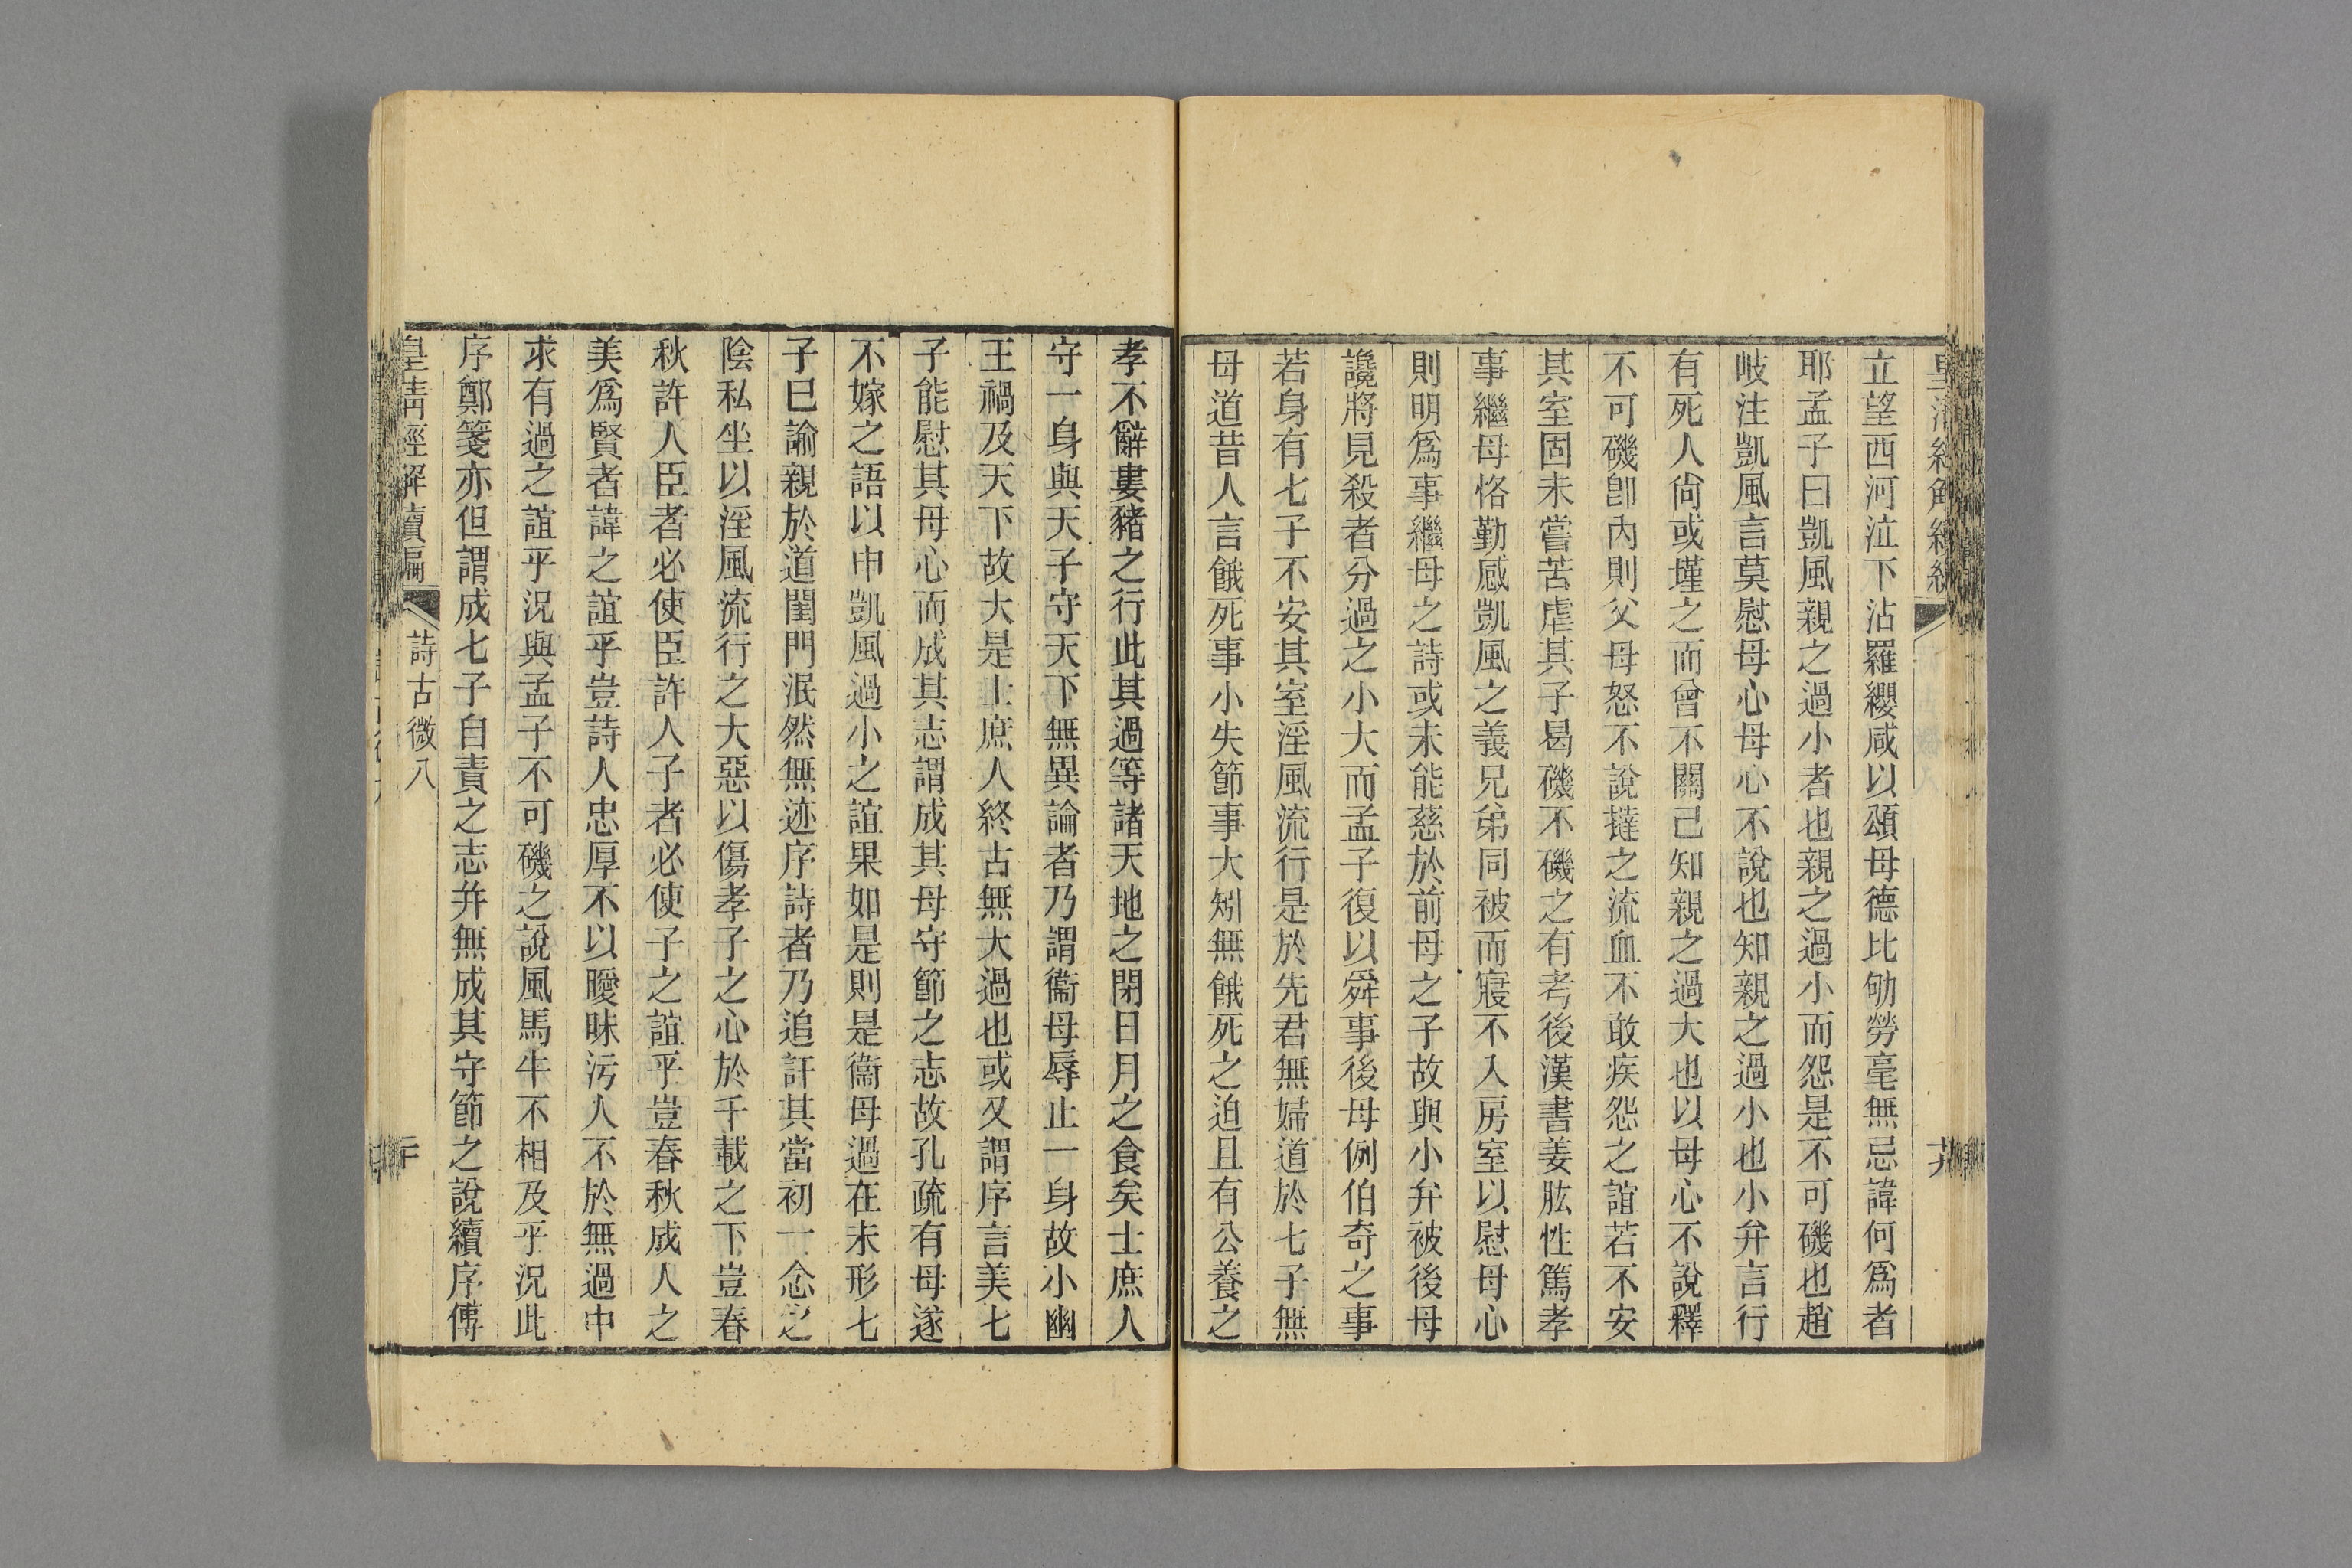 立望西河泣下沾羅纓咸以頌母德比劬勞毫無忌諱何爲者
耶孟子曰凱風親之過小者也親之過小而怨是不可磯也趙
岐注凱風言莫慰母心母心不說也知親之過小也小弁言行
有死人尙或墐之而曾不關己知親之過大也以母心不說釋
不可磯卽內則父母怒不說撻之流血不敢疾怨之誼若不安
其室固未嘗苦虐其子曷磯不磯之有考後漢書姜肱性篤孝
事繼母恪勤感凱風之義兄弟同被而寢不入房室以慰母心
則明爲事繼母之詩或未能慈於前母之子故與小弁被後母
讒將見殺者分過之小大而孟子復以舜事後母例伯奇之事
若身有七子不安其室淫風流行是於先君無婦道於七子無
母道昔人言餓死事小失節事大矧無餓死之迫且有公養之
孝不辭婁豬之行此其過等諸天地之閉日月之食矣士庶人
守一身與天子守天下無異論者乃謂衞母辱止一身故小幽
王禍及天下故大是士庶人終古無大過也或又謂序言美七
子能慰其母心而成其志謂成其母守節之志故孔疏有母遂
不嫁之語以申凱風過小之誼果如是則是衞母過在未形七
子巳諭親於道閨門泯然無迹序詩者乃追訐其當初一念之
陰私坐以淫風流行之大惡以傷孝子之心於千載之下豈春
秋許人臣者必使臣許人子者必使子之誼乎豈春秋成人之
美爲賢者諱之誼乎豈詩人忠厚不以曖昧污人不於無過中
求有過之誼乎況與孟子不可磯之說風馬牛不相及乎況此
序鄭箋亦但謂成七子自責之志并無成其守節之說續序傅
皇淸經解續編
詩古微八